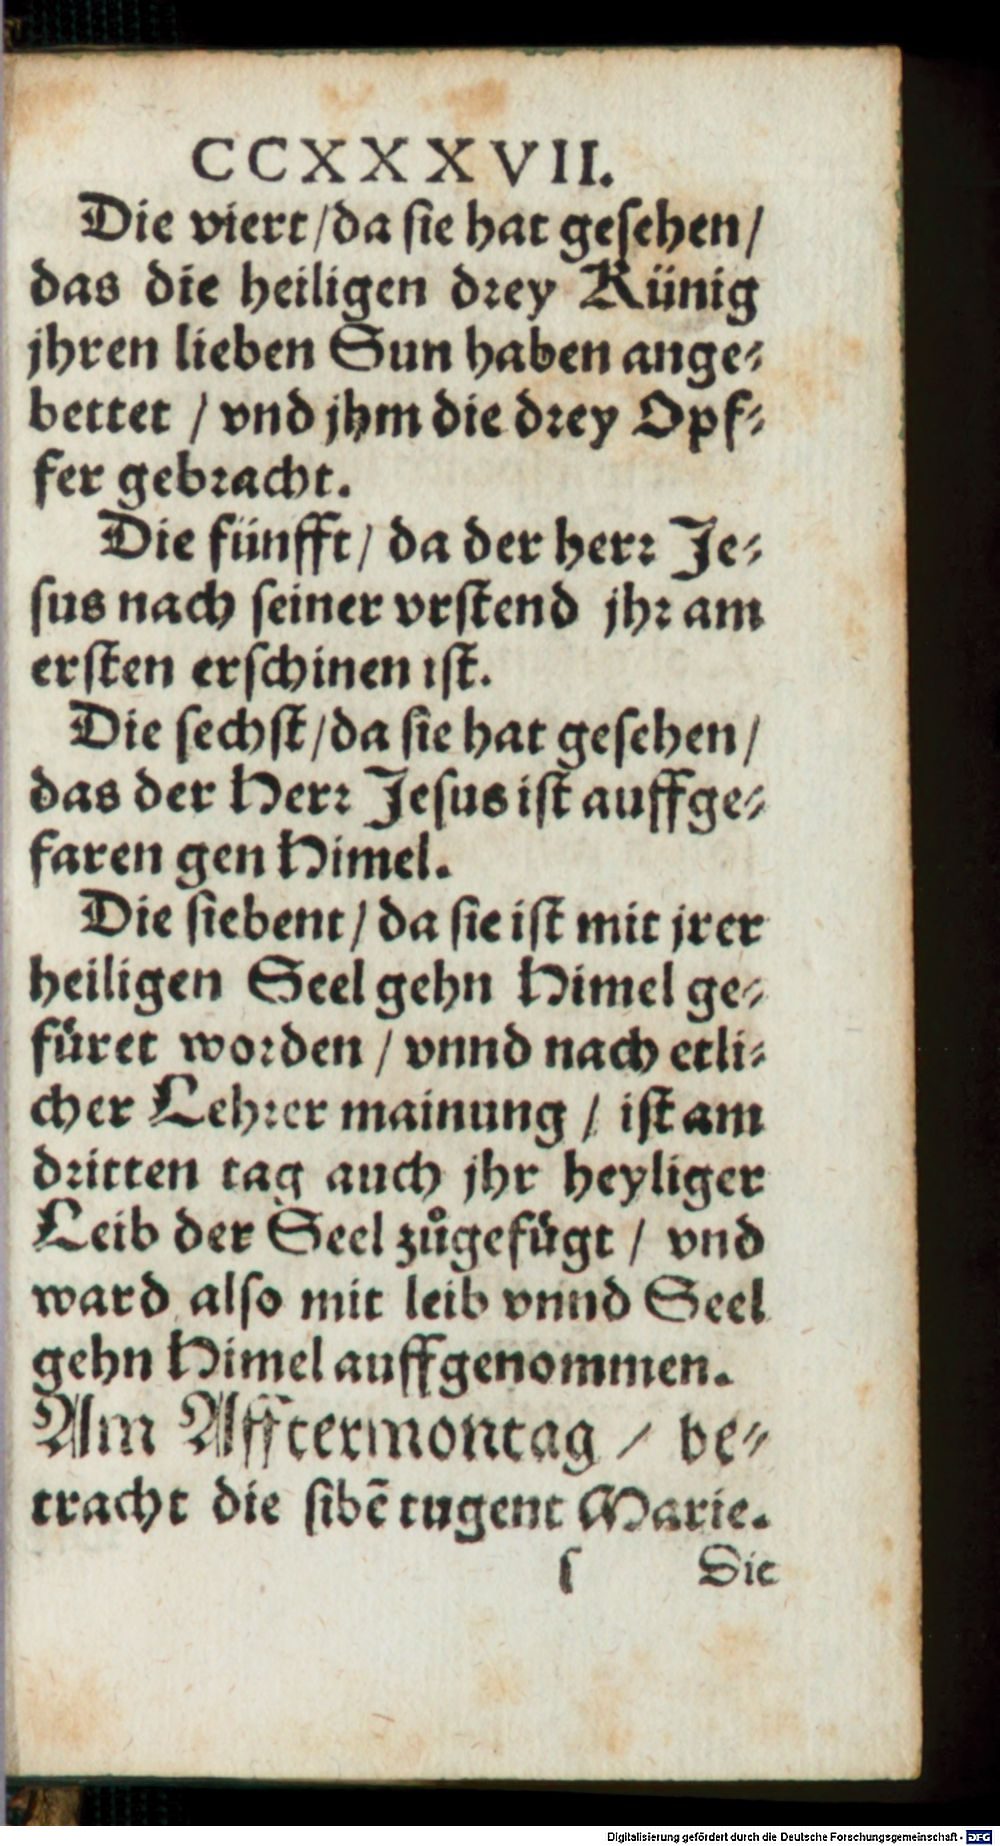 CCXXXVII.
Die viert / da sie hat gesehen /
das die heiligen drey Künig
jhren lieben Sun haben ange⸗
bettet / vnd jhm die drey Opf⸗
fer gebracht.
Die fünfft / da der herr Je⸗
sus nach seiner vrstend jhr am
ersten erschinen ist.
Die sechst / da sie hat gesehen /
das der Herr Jesus ist auffge⸗
faren gen Himel.
Die siebent / da sie ist mit jrer
heiligen Seel gehn Himel ge⸗
fůret worden / vnnd nach etli⸗
cher Lehrer mainung / ist am
dritten tag auch jhr heyliger
Leib der Seel zůgefůgt / vnd
ward also mit leib vnnd Seel
gehn Himel auffgenommen.
Am Afftermontag / be⸗
tracht die sibē tugent Marie.
ſ Die
Digitalisierung gefördert durch die Deutsche Forschungsgemeinschaft - DFG